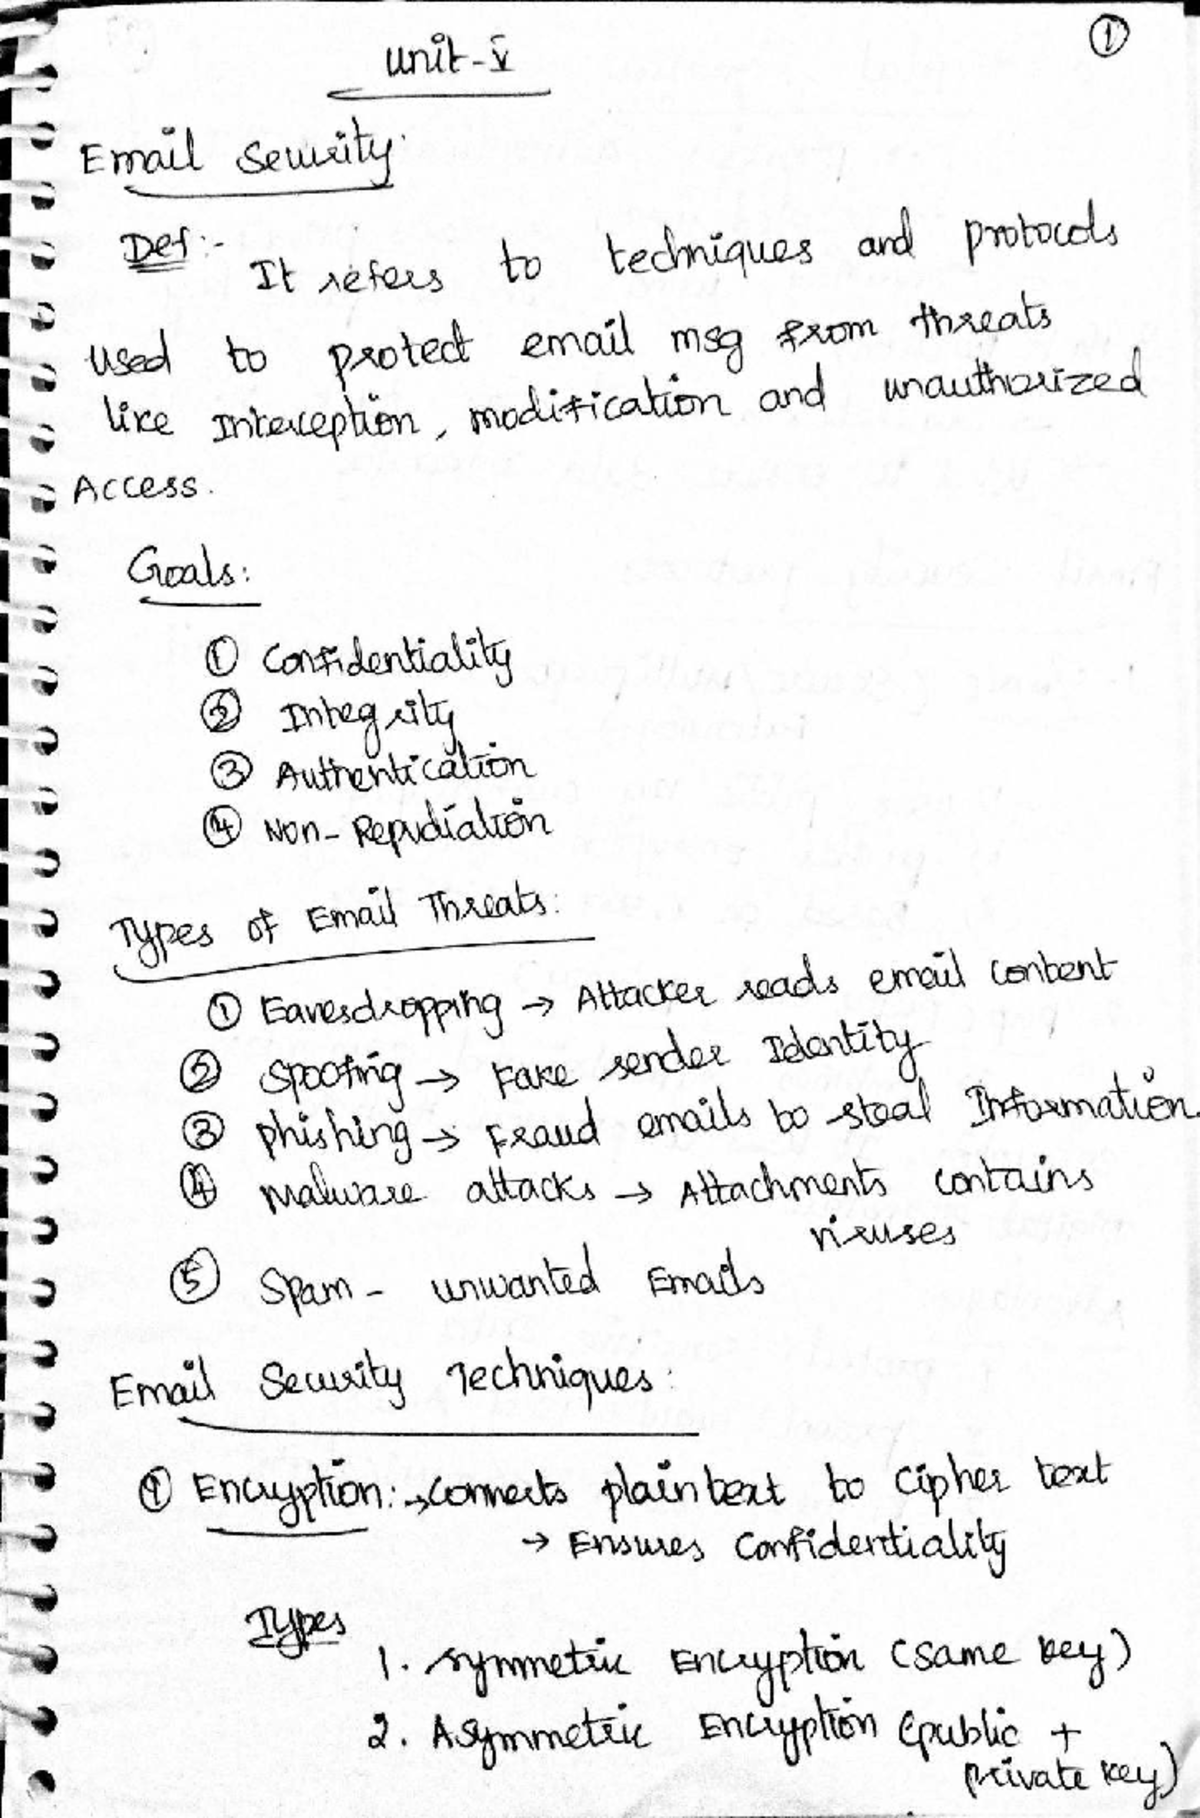 ①
Unit-V
Email Security:
Def:- It refers to techniques and protocols
used to protect email msg from threats
like Interception, modification and unauthorized
Access.
Goals:
① Confidentiality
② Integrity
③ Authentication
④ Non-Repudiation
Types of Email Threats:
① Eavesdropping → Attacker reads email content
② Spoofing → Fake sender Identity
③ phishing → Fraud emails to steal Information.
④ Malware attacks → Attachments contains
viruses
⑤ Spam - unwanted Emails
Email Security Techniques:
① Encryption: → Converts plaintext to Cipher text
→ Ensures Confidentiality
Types
1. Symmetric Encryption (same key)
2. Asymmetric Encryption (public +
private key)